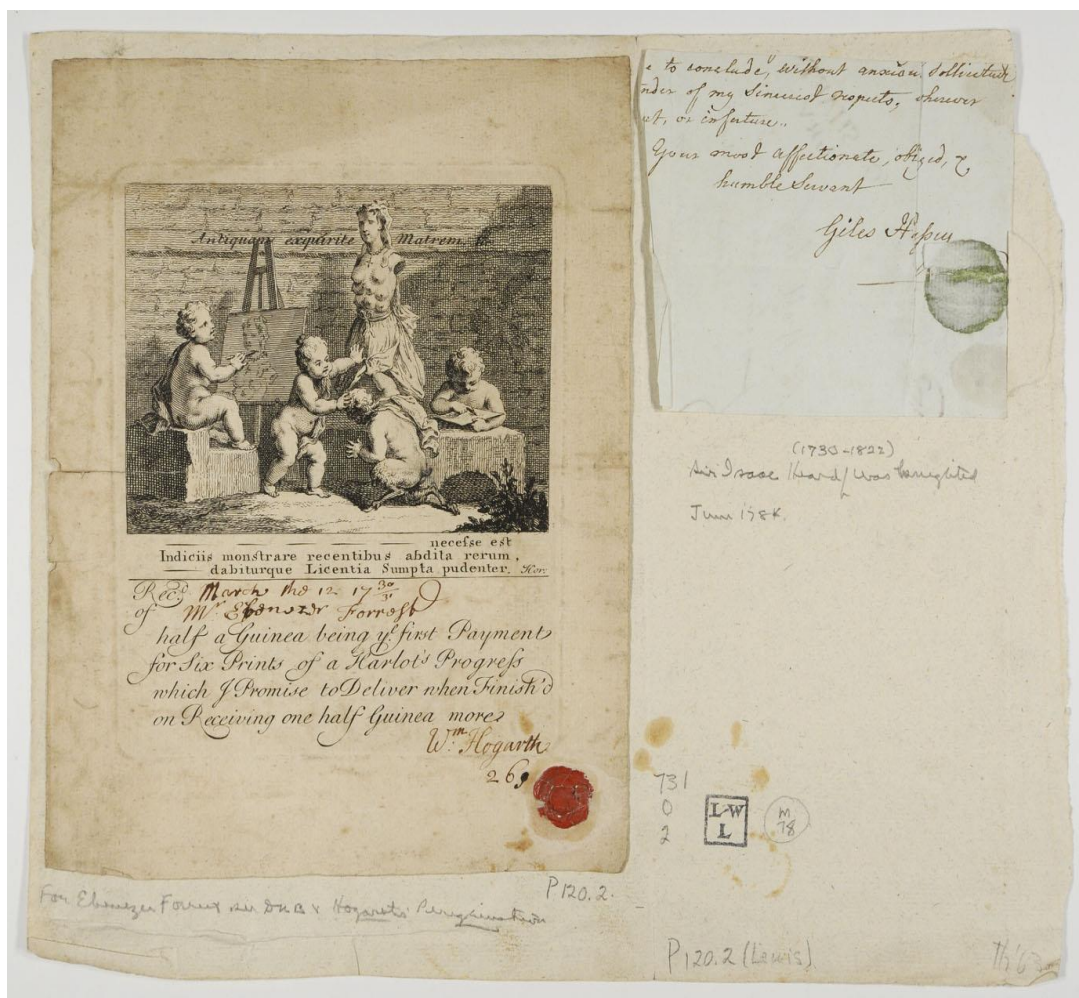 Antiquam exquirite Matrem
necefse est
Indiciis monstrare recentibus abdita rerum,
dabiturque Licentia Sumpta pudenter. Hor:
Recd. March the 12 17 30/1
of Mr Ebenezer Forrest
half a Guinea being ye. first Payment
for Six Prints of a Harlot's Progrefs
which I Promise to Deliver when Finish'd
on Receiving one half Guinea more
Wm. Hogarth
269
For Ebenezer Forrest see DNB & Hogarth's Peregrination
P120.2.
e to conclude, without anxious Sollicitude
nder of my Sincerest respects,
or in future..
Your most affectionate, obliged, &
humble Servant
Giles
(1730-1822)
Sir Isaac Heard was knighted
June 1784.
731
0
2
L·W
L
M
78
P120.2 (Lewis)